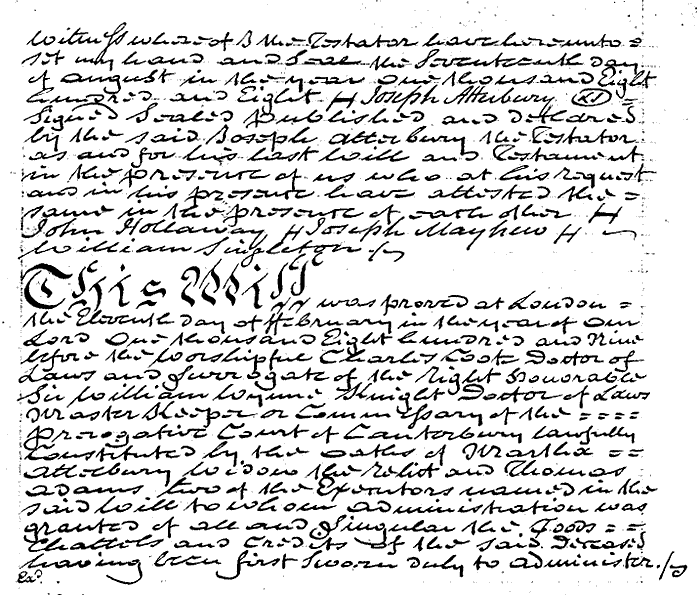 Witness whereof I the Testator have hereunto =
set my hand and Seal the Seventeenth day
of August in the year One thousand Eight
hundred and Eight H Joseph Atterbury (LS) =
Signed Sealed published and declared
by the said Joseph Atterbury the Testator
as and for his last Will and Testament
in the presence of us who at his request
and in his presence have attested the =
same in the presence of each other H
John Hollaway H Joseph Mayhew H
William Singleton
This Will was proved at London =
the Eleventh day of February in the year of our
Lord One thousand Eight hundred and Nine
before the Worshipful Charles Coot Doctor of
Laws and Surrogate of the Right Honorable
Sir William Wynne Knight Doctor of Laws
Master Keeper or Commissary of the = = = =
Prerogative Court of Canterbury lawfully
Constituted by the Oaths of Martha = =
Atterbury Widow the Relict and Thomas
Adams two of the Executors named in the
said Will to whom administration was
granted of all and Singular the Goods = =
Chattels and Credits of the said deceased
having been first Sworn duly to administer.
Ex.d